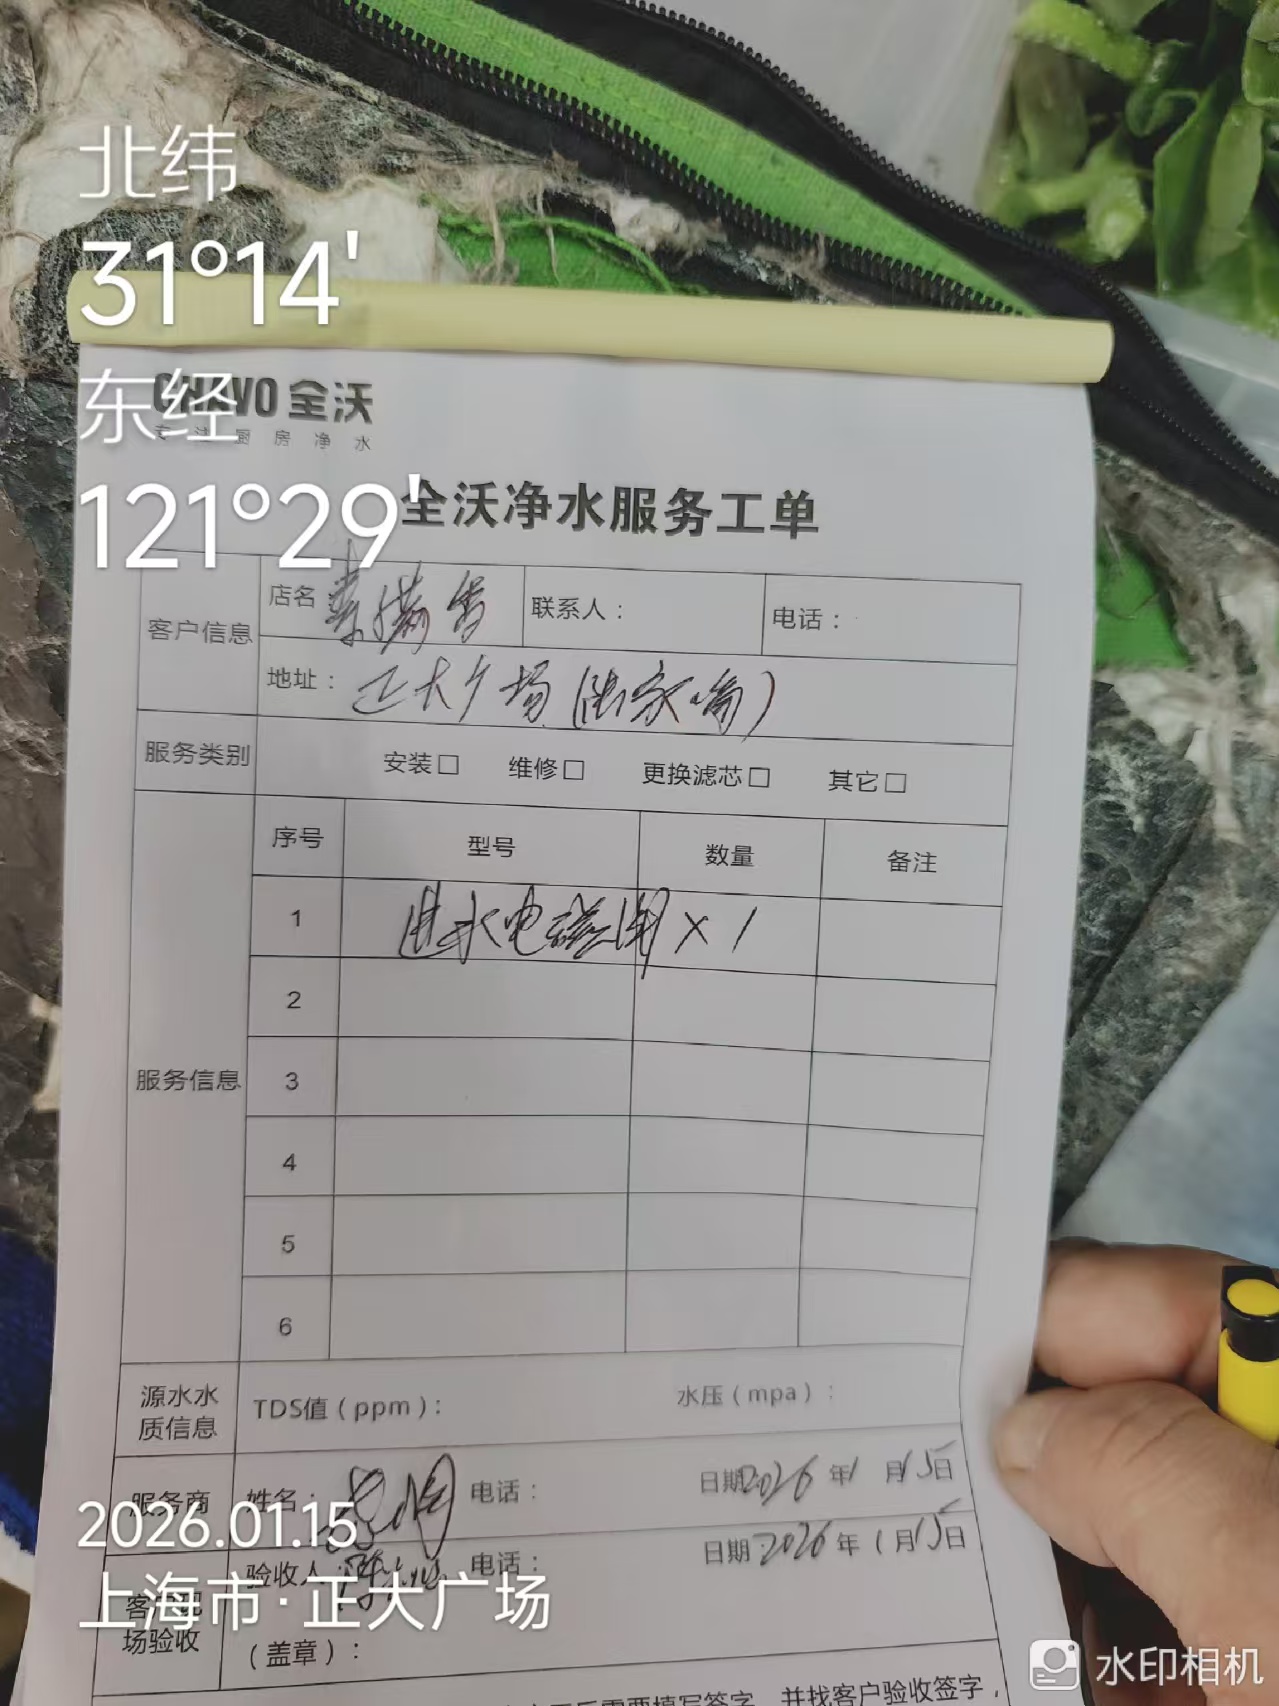 北纬
31°14'
东经
121°29'
CHAVO 全沃
专注厨房净水
全沃净水服务工单
客户信息
店名
联系人：
电话：
地址： 正大广场(陆家嘴)
服务类别
安装□ 维修□ 更换滤芯□ 其它□
服务信息
序号 型号 数量 备注
1 进水电磁阀 × 1
2
3
4
5
6
源水水质信息
TDS值（ppm）： 水压（mpa）：
服务商
姓名： 电话： 日期 2026年1月15日
验收人 电话： 日期 2026年1月15日
场验收
（盖章）：
并找客户验收签字，
2026.01.15
上海市·正大广场
水印相机